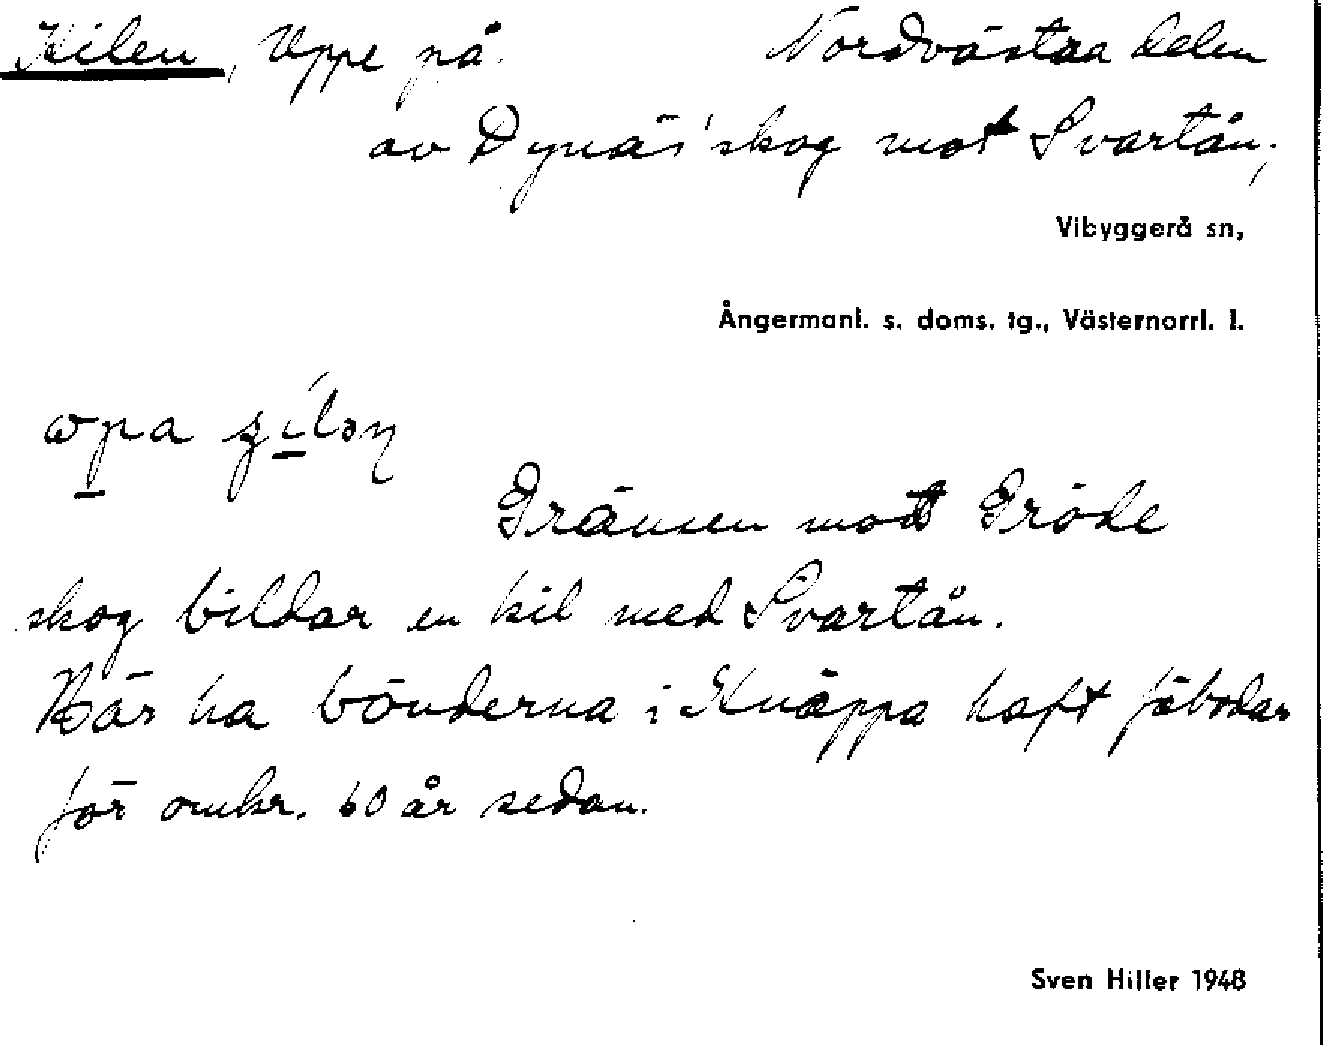 Kilen, Uppe på. Nordvästra delen
av Dynäs' skog mot Svartån,
Vibyggerå sn,
Ångermanl. s. doms. tg., Västernorrl. l.
Gränsen mot Gröde
skog bildar en kil med Svartån.
Här ha bönderna i Knäppa haft fäbodar
för omkr. 60 år sedan.
Sven Hiller 1948